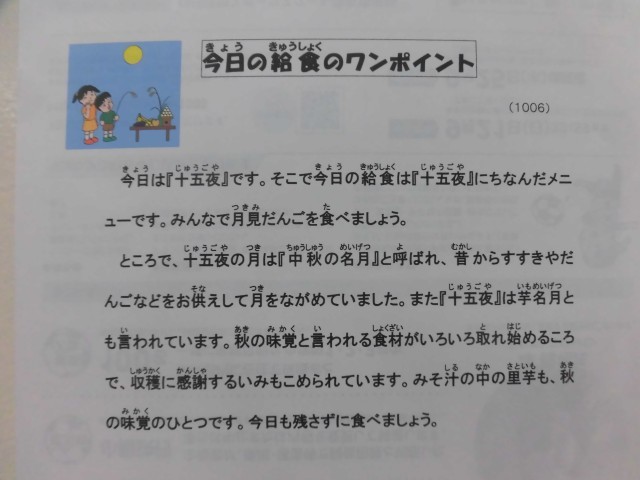 今日の給食のワンポイント
（1006）
今日は『十五夜』です。そこで今日の給食は『十五夜』にちなんだメニ
ューです。みんなで月見だんごを食べましょう。
ところで、十五夜の月は『中秋の名月』と呼ばれ、昔からすすきやだ
んごなどをお供えして月をながめていました。また『十五夜』は芋名月と
も言われています。秋の味覚と言われる食材がいろいろ取れ始めるころ
で、収穫に感謝するいみもこめられています。みそ汁の中の里芋も、秋
の味覚のひとつです。今日も残さずに食べましょう。